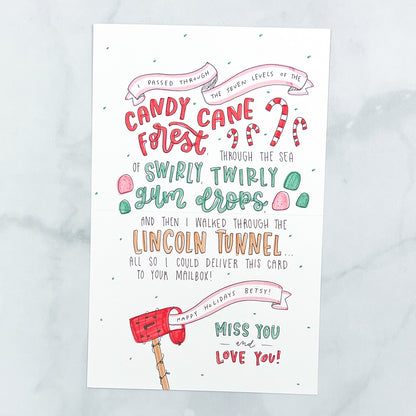 I PASSED THROUGH THE SEVEN LEVELS OF THE
CANDY CANE
FOREST,
THROUGH THE SEA
OF SWIRLY, TWIRLY
gum drops,
AND THEN I WALKED THROUGH THE
LINCOLN TUNNEL...
ALL SO I COULD DELIVER THIS CARD
TO YOUR MAILBOX!
HAPPY HOLIDAYS BETSY!
MISS YOU
and
LOVE YOU!